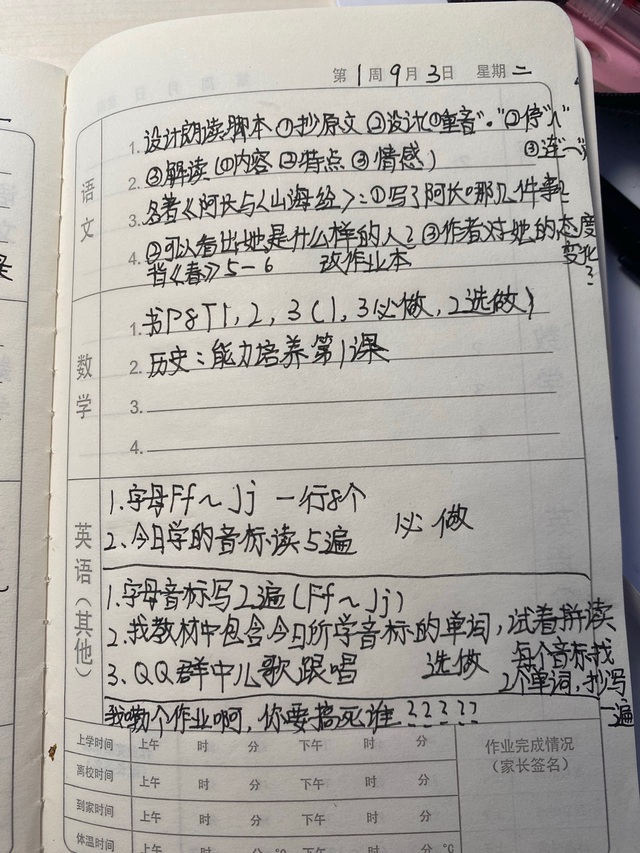 第1周9月3日 星期二
语文
1. 设计朗读脚本 ①抄原文 ②设计(①重音"•"②停"∧"
③连"⌒")
2. ③解读(①内容 ②特点 ③情感)
3. 名著《阿长与〈山海经〉》:①写了阿长哪几件事?
4. ②可以看出她是什么样的人?③作者对她的态度
变化?
背《春》5-6 改作业本
数学
1. 书P8 T1,2,3(1,3必做,2选做)
2. 历史:能力培养第1课
3.
4.
英语(其他)
1.字母Ff~Jj 一行8个
2.今日学的音标读5遍 必做
1.字母音标写2遍(Ff~Jj)
2.找教材中包含今日所学音标的单词,试着拼读
每个音标找
2个单词,抄写
一遍
3.QQ群中儿歌跟唱 选做
我嘞个作业啊,你要搞死谁?????
上学时间 上午 时 分 下午 时 分
离校时间 上午 时 分 下午 时 分
到家时间 上午 时 分 下午 时 分
体温时间 上午 时 分 °C 下午 时 分 °C
作业完成情况
(家长签名)